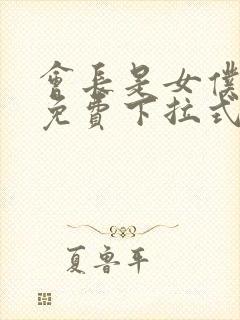 會長是女僕
免費下拉式
夏魯平